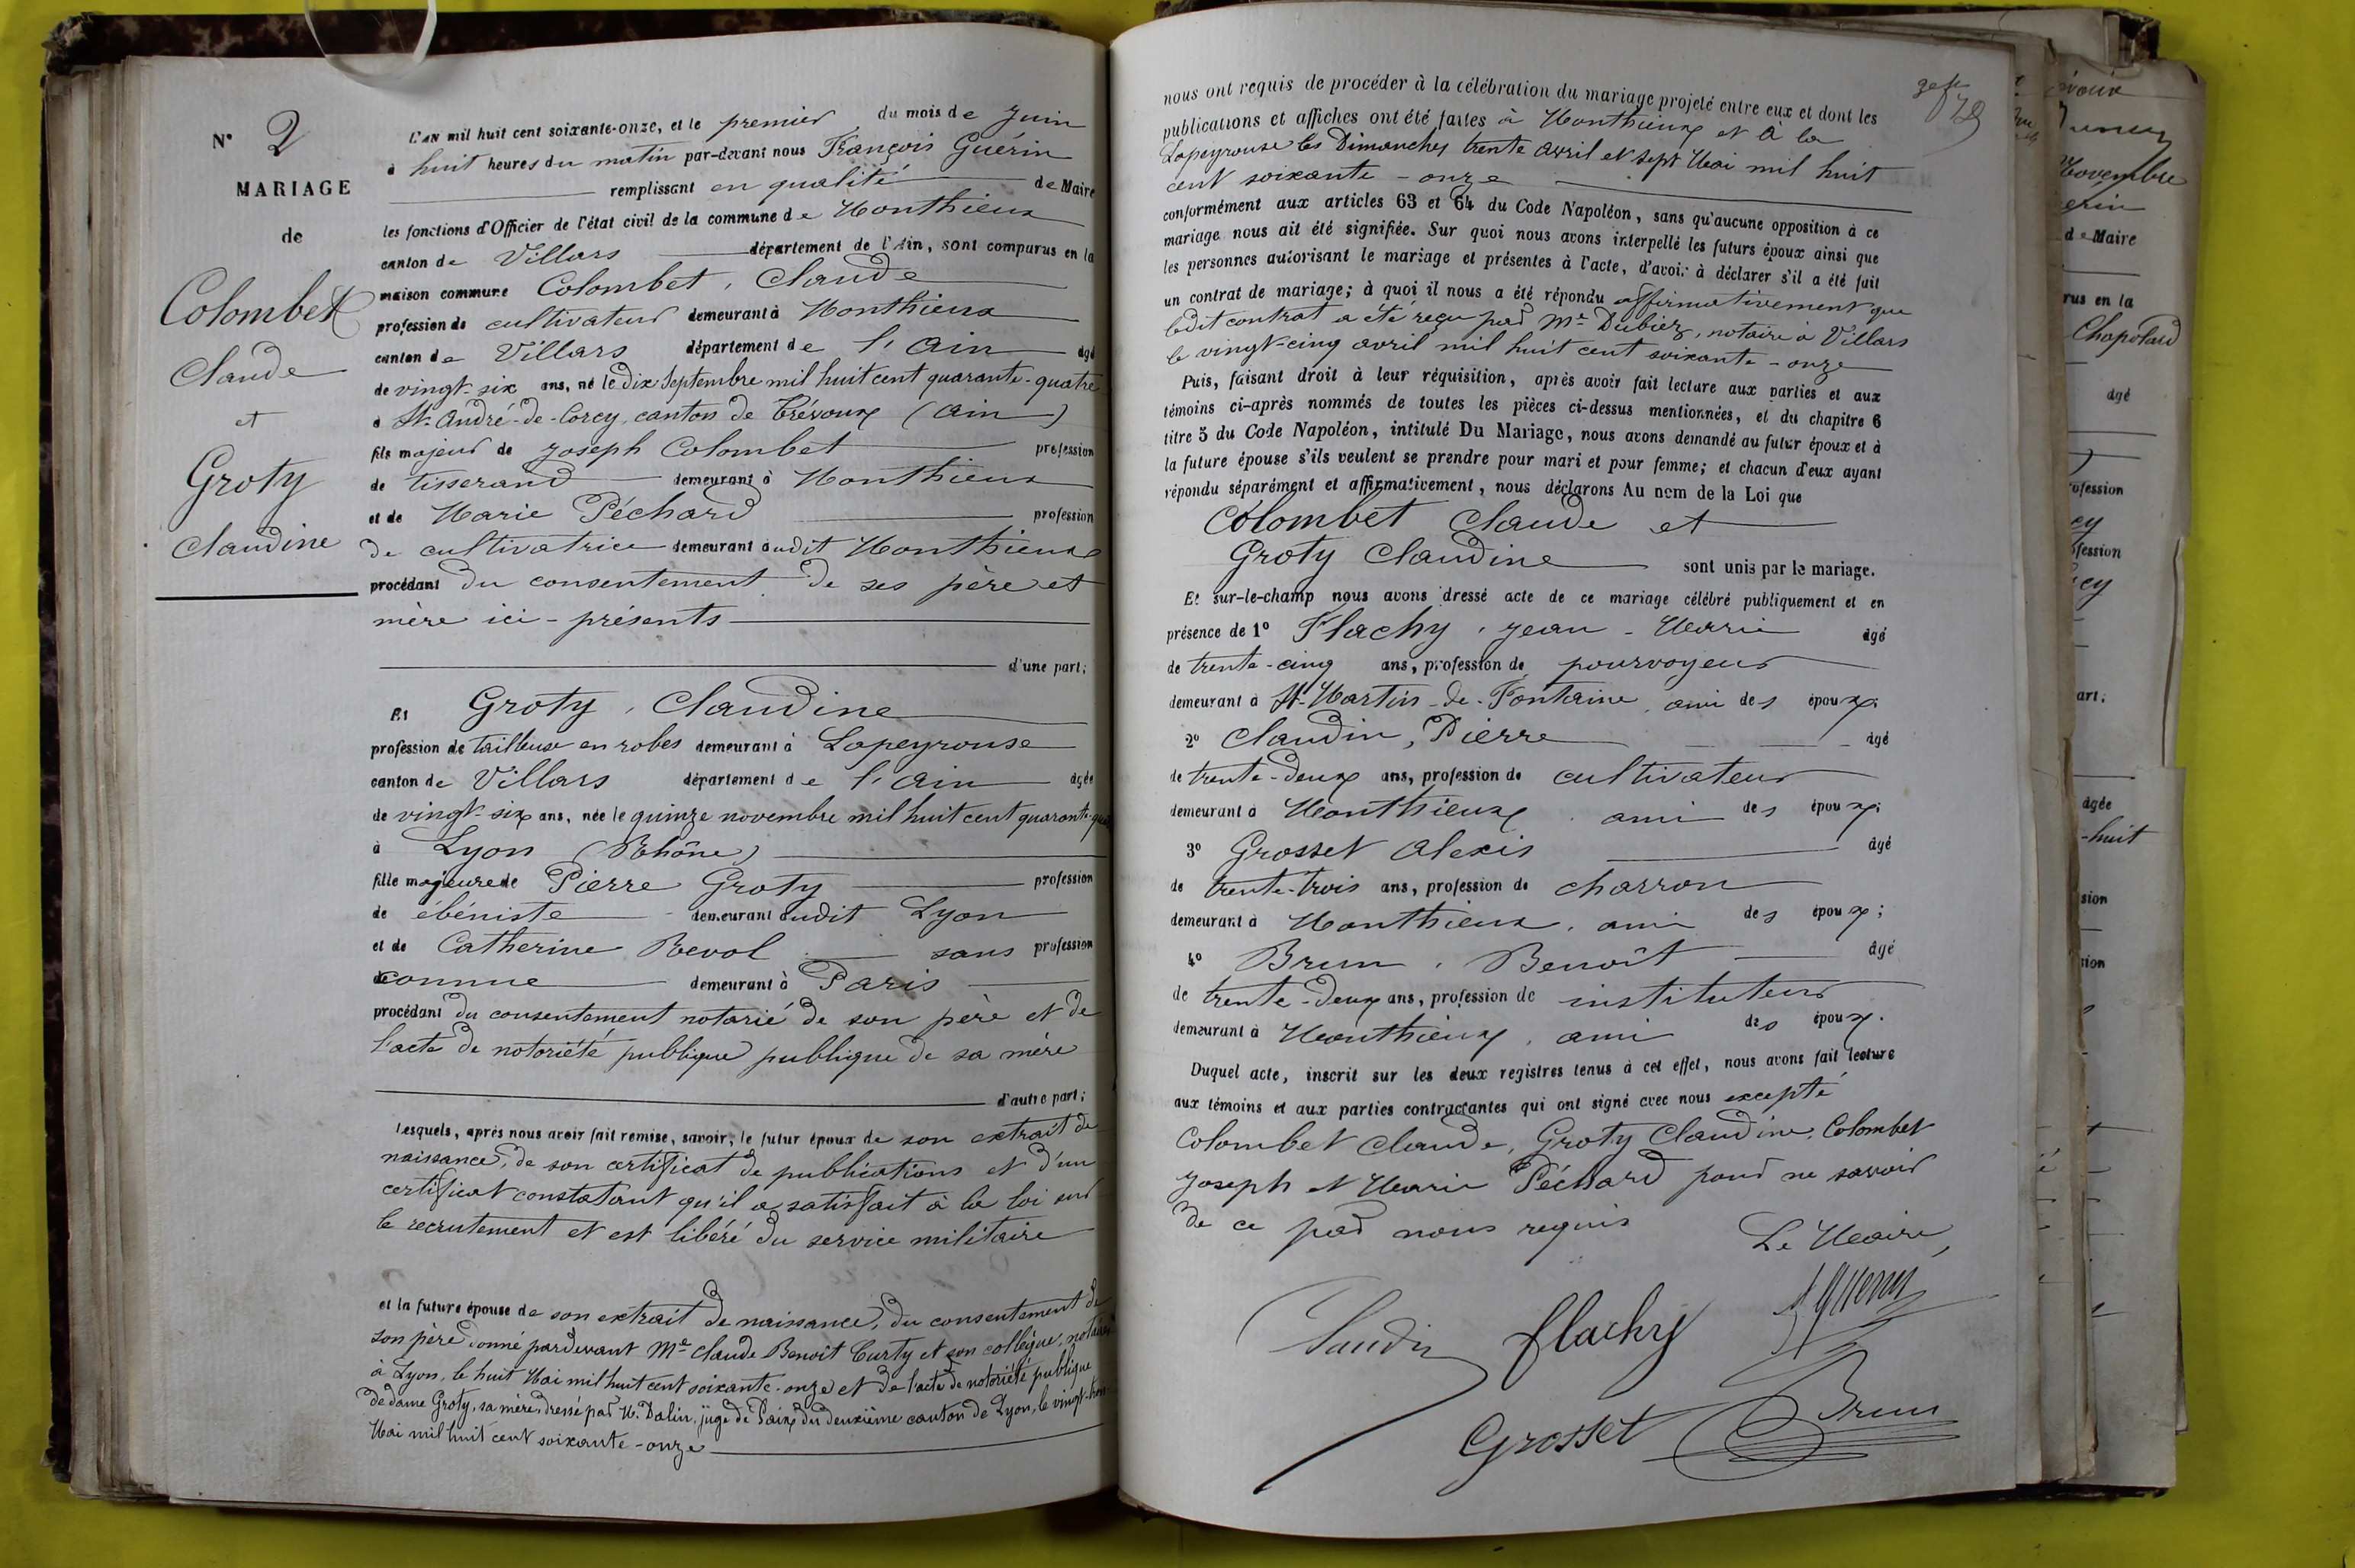 N° 2
MARIAGE
de
Colombet
Claude
et
Groty
Claudine
L'AN mil huit cent soixante-onze, et le premier du mois de Juin
à huit heures du matin par-devant nous François Guérin
remplissant en qualité de Maire
les fonctions d'Officier de l'état civil de la commune de Monthieux
canton de Villars département de l'Ain, sont comparus en la
maison commune Colombet, Claude
profession de cultivateur demeurant à Monthieux
canton de Villars département de l'Ain âgé
de vingt-six ans, né le Dix Septembre mil huit cent quarante-quatre
à St-André-de-Corcy, canton de Trévoux (Ain)
fils majeur de Joseph Colombet profession
de tisserand demeurant à Monthieux
et de Marie Péchard profession
de cultivatrice demeurant audit Monthieux
procédant du consentement de ses père et
mère ici-présents
d'une part;
Et Groty, Claudine
profession de tailleuse en robes demeurant à Lapeyrouse
canton de Villars département de l'Ain âgée
de vingt-six ans, née le quinze novembre mil huit cent quarante-quatre
à Lyon (Rhône)
fille majeure de Pierre Groty profession
de ébéniste demeurant audit Lyon
et de Catherine Revol sans profession
connue demeurant à Paris
procédant du consentement notarié de son père et de
l'acte de notoriété publique publique de sa mère
d'autre part;
Lesquels, après nous avoir fait remise, savoir, le futur époux de son extrait de
naissance, de son certificat de publications et d'un
certificat constatant qu'il a satisfait à la loi sur
le recrutement et est libéré du service militaire
et la future épouse de son extrait de naissance, du consentement de
son père donné pardevant Me Claude Benoît Curty et son collègue, notaires
à Lyon, le huit Mai mil huit cent soixante-onze et de l'acte de notoriété publique
de dame Groty, sa mère, dressé par M. Dalin, juge de Paix du deuxième canton de Lyon, le vingt-trois
Mai mil huit cent soixante-onze
nous ont requis de procéder à la célébration du mariage projeté entre eux et dont les
publications et affiches ont été faites à Monthieux et à la
Lapeyrouse les Dimanches trente avril et sept Mai mil huit
cent soixante-onze
conformément aux articles 63 et 64 du Code Napoléon, sans qu'aucune opposition à ce
mariage nous ait été signifiée. Sur quoi nous avons interpellé les futurs époux ainsi que
les personnes autorisant le mariage et présentes à l'acte, d'avoir à déclarer s'il a été fait
un contrat de mariage; à quoi il nous a été répondu affirmativement que
ledit contrat a été reçu par Me Dubiez, notaire à Villars
le vingt-cinq avril mil huit cent soixante-onze
Puis, faisant droit à leur réquisition, après avoir fait lecture aux parties et aux
témoins ci-après nommés de toutes les pièces ci-dessus mentionnées, et du chapitre 6
titre 5 du Code Napoléon, intitulé Du Mariage, nous avons demandé au futur époux et à
la future épouse s'ils veulent se prendre pour mari et pour femme; et chacun d'eux ayant
répondu séparément et affirmativement, nous déclarons Au nom de la Loi que
Colombet Claude et
Groty Claudine sont unis par le mariage.
Et sur-le-champ nous avons dressé acte de ce mariage célébré publiquement et en
présence de 1° Flachy, Jean-Marie âgé
de trente-cinq ans, profession de pourvoyeur
demeurant à St-Martin-de-Fontaine, ami des époux;
2° Claudin, Pierre âgé
de trente-deux ans, profession de cultivateur
demeurant à Monthieux, ami des époux;
3° Grosset Alexis âgé
de trente-trois ans, profession de charron
demeurant à Monthieux, ami des époux;
4° Brun, Benoît âgé
de trente-deux ans, profession de instituteur
demeurant à Monthieux, ami des époux.
Duquel acte, inscrit sur les deux registres tenus à cet effet, nous avons fait lecture
aux témoins et aux parties contractantes qui ont signé avec nous excepté
Colombet Claude, Groty Claudine, Colombet
Joseph et Marie Péchard pour ne savoir
de ce par nous requis
Le Maire,
Claudin flachy Guérin
Grosset Brun
Novembre
de Maire
rus en la
Chapolard
âgé
ofession
cy
ofession
cey
art;
âgée
-huit
sion
sion